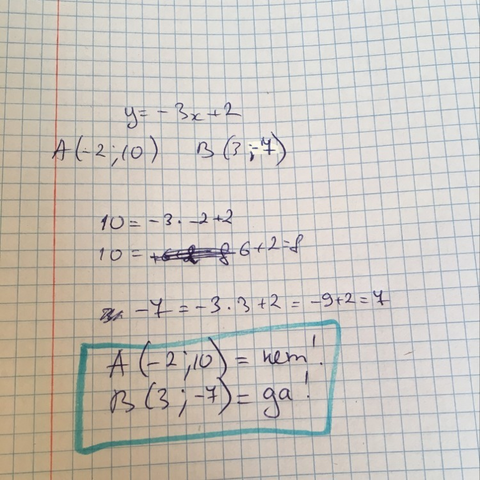 y=-3x+2
A(-2;10) B(3;-7)
10=-3·-2+2
10= 6+2=8
-7=-3·3+2=-9+2=7
A(-2;10)=нет!
B(3;-7)=да!